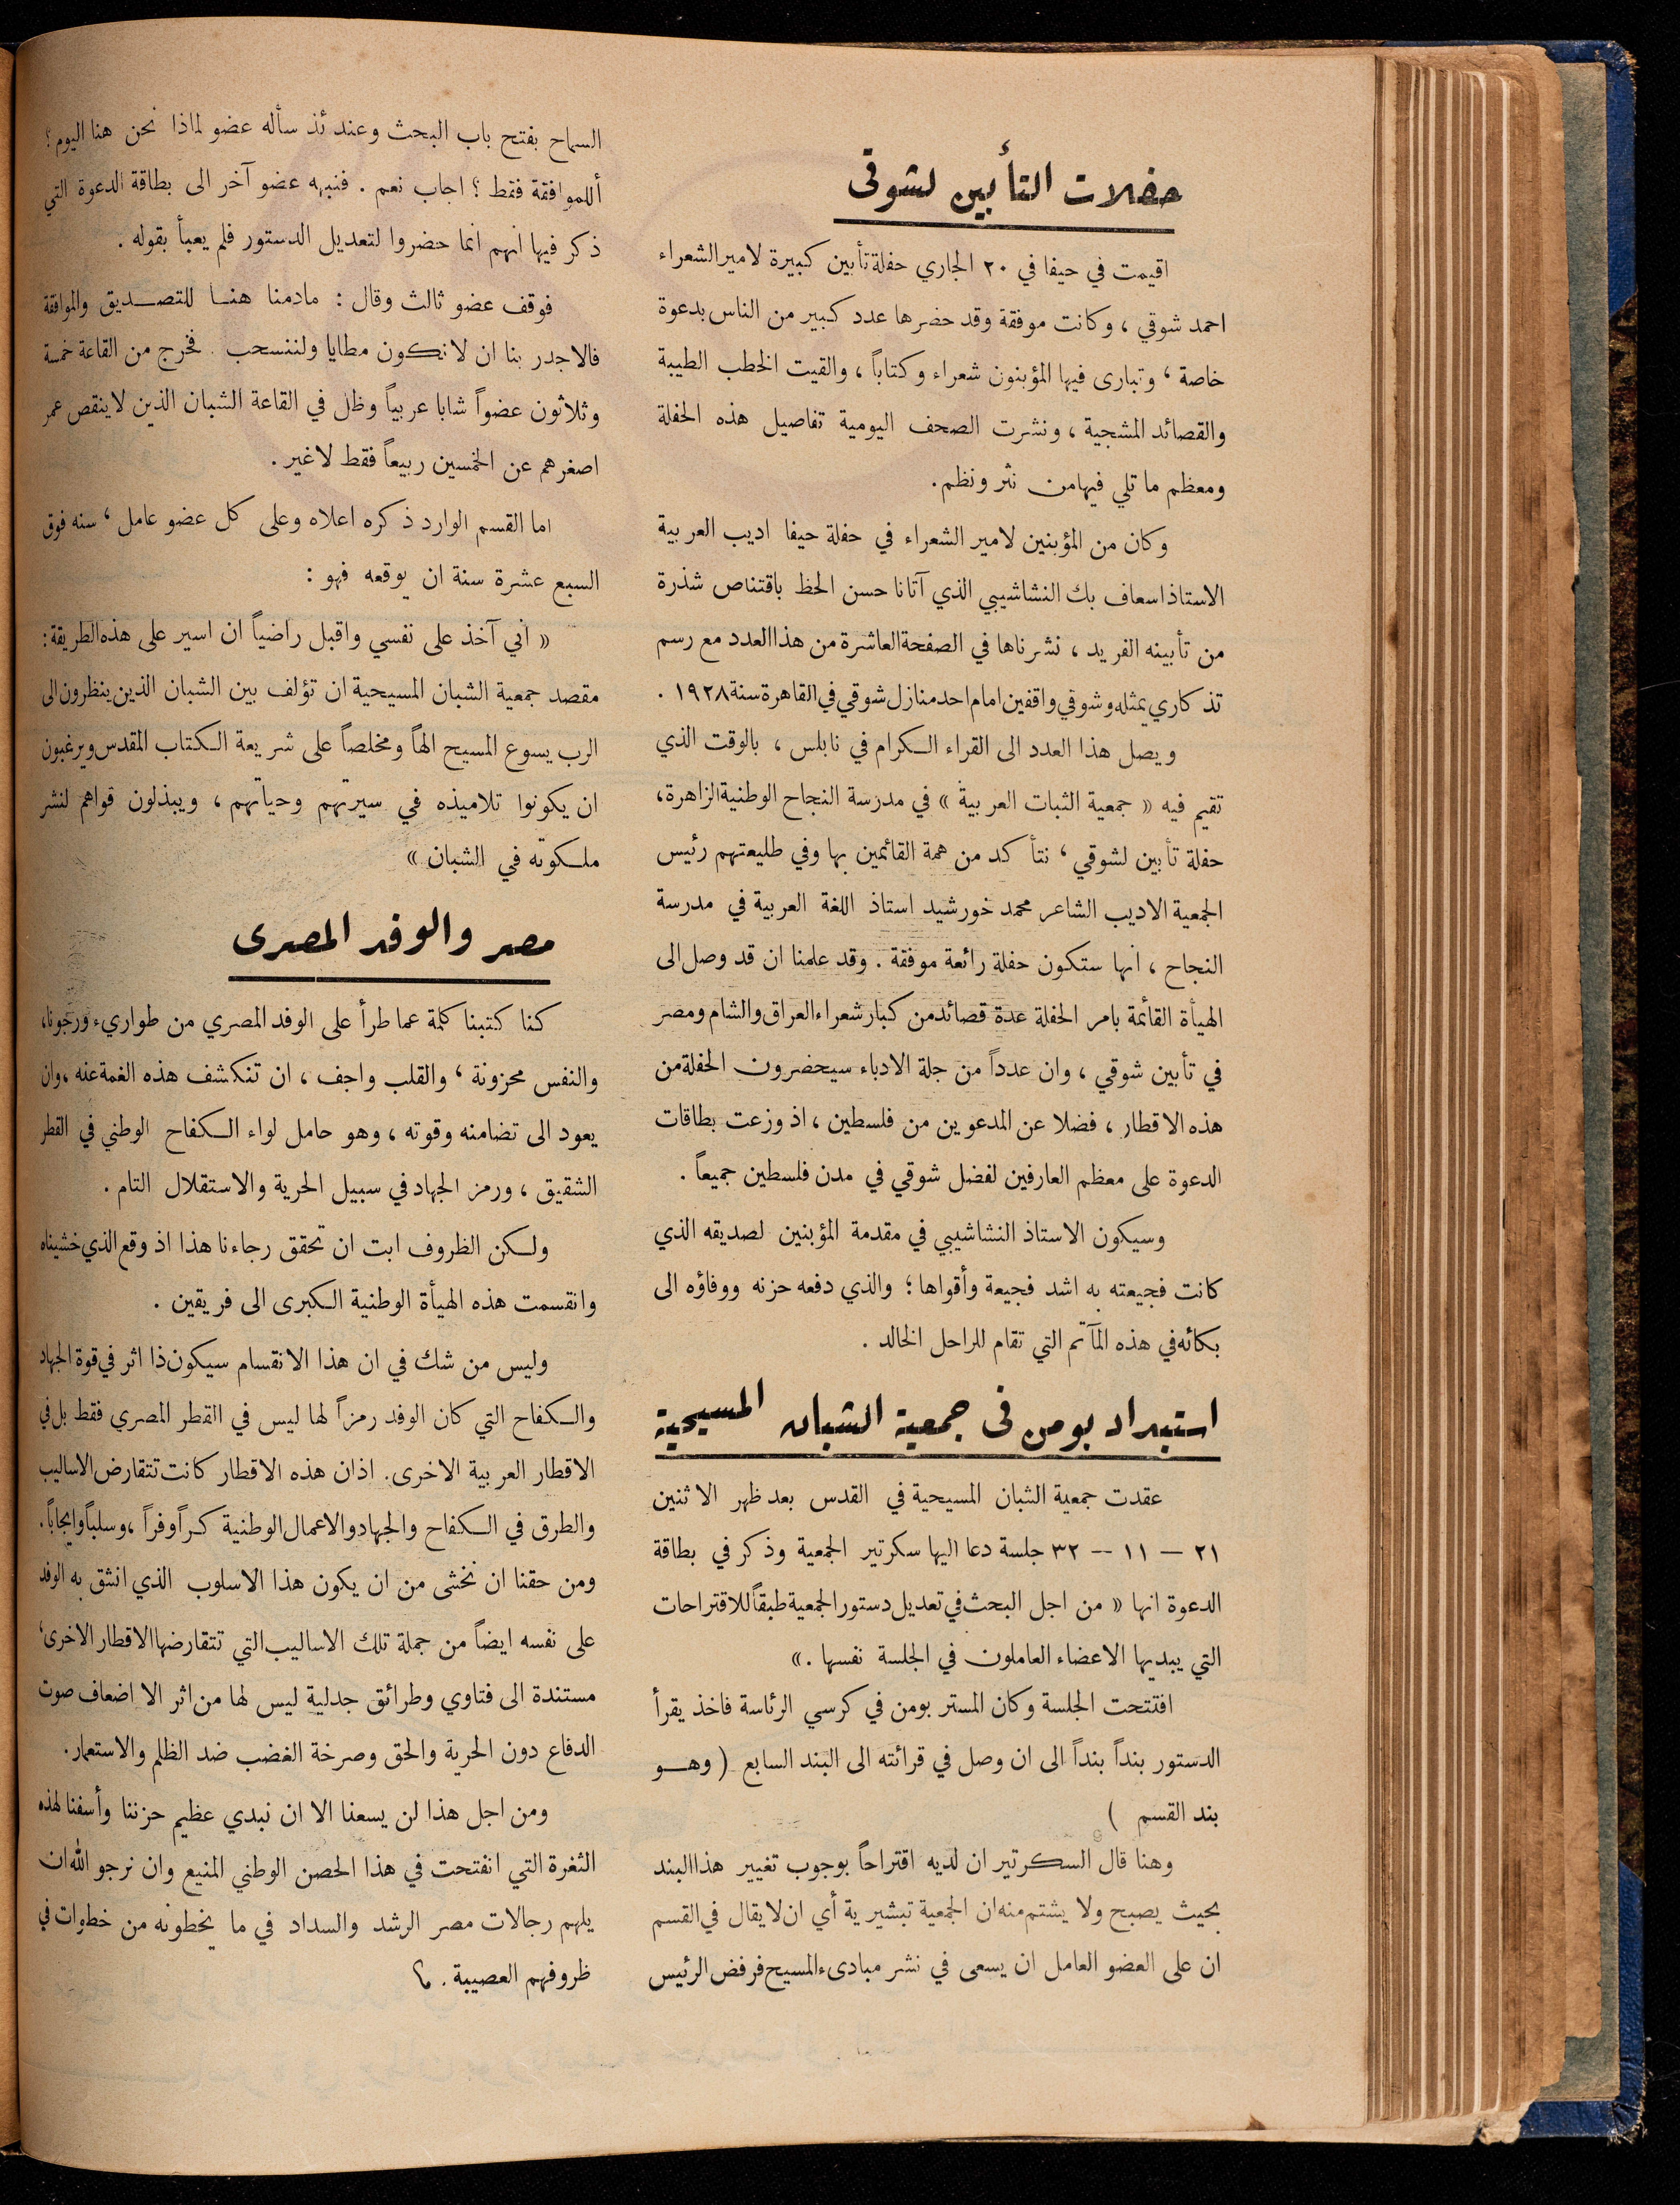 حفلات التأبين لشوقي
اقيمت في حيفا في ٢٠ الجاري حفلة تأبين كبيرة لامير الشعراء
احمد شوقي ، وكانت موفقة وقد حضرها عدد كبير من الناس بدعوة
خاصة ، وتبارى فيها المؤبنون شعراء وكتاباً ، والقيت الخطب الطيبة
والقصائد المشجية ، ونشرت الصحف اليومية تفاصيل هذه الحفلة
ومعظم ما تلي فيها من نثر ونظم .
وكان من المؤبنين لامير الشعراء في حفلة حيفا اديب العربية
الاستاذ اسعاف بك النشاشيبي الذي آتانا حسن الحظ باقتناص شذرة
من تأبينه الفريد ، نشرناها في الصفحة العاشرة من هذا العدد مع رسم
تذكاري يمثله وشوقي واقفين امام احد منازل شوقي في القاهرة سنة ١٩٢٨ .
ويصل هذا العدد الى القراء الكرام في نابلس ، بالوقت الذي
تقيم فيه « جمعية الثبات العربية » في مدرسة النجاح الوطنية الزاهرة ،
حفلة تأبين لشوقي ، نتأكد من همة القائمين بها وفي طليعتهم رئيس
الجمعية الاديب الشاعر محمد خورشيد استاذ اللغة العربية في مدرسة
النجاح ، انها ستكون حفلة رائعة موفقة . وقد علمنا ان قد وصل الى
الهيأة القائمة بامر الحفلة عدة قصائد من كبار شعراء العراق والشام ومصر
في تأبين شوقي ، وان عدداً من جلة الادباء سيحضرون الحفلة من
هذه الاقطار ، فضلا عن المدعوين من فلسطين ، اذ وزعت بطاقات
الدعوة على معظم العارفين لفضل شوقي في مدن فلسطين جميعاً .
وسيكون الاستاذ النشاشيبي في مقدمة المؤبنين لصديقه الذي
كانت فجيعته به اشد فجيعة وأقواها ؛ والذي دفعه حزنه ووفاؤه الى
بكائه في هذه المآتم التي تقام للراحل الخالد .
استبداد بومن في جمعية الشبان المسيحية
عقدت جمعية الشبان المسيحية في القدس بعد ظهر الاثنين
٢١ — ١١ — ٣٢ جلسة دعا اليها سكرتير الجمعية وذكر في بطاقة
الدعوة انها « من اجل البحث في تعديل دستور الجمعية طبقاً للاقتراحات
التي يبديها الاعضاء العاملون في الجلسة نفسها . »
افتتحت الجلسة وكان المستر بومن في كرسي الرئاسة فاخذ يقرأ
الدستور بنداً بنداً الى ان وصل في قرائته الى البند السابع ( وهو
بند القسم )
وهنا قال السكرتير ان لديه اقتراحاً بوجوب تغيير هذا البند
بحيث يصبح ولا يشتم منه ان الجمعية تبشيرية أي ان لا يقال في القسم
ان على العضو العامل ان يسعى في نشر مبادىء المسيح فرفض الرئيس
السماح بفتح باب البحث وعندئذ سأله عضو لماذا نحن هنا اليوم ؟
أللموافقة فقط ؟ اجاب نعم . فنبهه عضو آخر الى بطاقة الدعوة التي
ذكر فيها انهم انما حضروا لتعديل الدستور فلم يعبأ بقوله .
فوقف عضو ثالث وقال : مادمنا هنا للتصديق والموافقة
فالاجدر بنا ان لا نكون مطايا ولننسحب . فخرج من القاعة خمسة
وثلاثون عضواً شابا عربياً وظل في القاعة الشبان الذين لا ينقص عمر
اصغرهم عن الخمسين ربيعاً فقط لا غير .
اما القسم الوارد ذكره اعلاه وعلى كل عضو عامل ، سنه فوق
السبع عشرة سنة ان يوقعه فهو :
« اني آخذ على نفسي واقبل راضياً ان اسير على هذه الطريقة :
مقصد جمعية الشبان المسيحية ان تؤلف بين الشبان الذين ينظرون الى
الرب يسوع المسيح الهاً ومخلصاً على شريعة الكتاب المقدس ويرغبون
ان يكونوا تلاميذه في سيرتهم وحياتهم ، ويبذلون قواهم لنشر
ملكوته في الشبان »
مصر والوفد المصري
كنا كتبنا كلمة عما طرأ على الوفد المصري من طواريء ورجونا ،
والنفس محزونة ، والقلب واجف ، ان تنكشف هذه الغمة عنه ، وان
يعود الى تضامنه وقوته ، وهو حامل لواء الكفاح الوطني في القطر
الشقيق ، ورمز الجهاد في سبيل الحرية والاستقلال التام .
ولكن الظروف ابت ان تحقق رجاءنا هذا اذ وقع الذي خشيناه
وانقسمت هذه الهيأة الوطنية الكبرى الى فريقين .
وليس من شك في ان هذا الانقسام سيكون ذا اثر في قوة الجهاد
والكفاح التي كان الوفد رمزاً لها ليس في القطر المصري فقط بل في
الاقطار العربية الاخرى . اذ ان هذه الاقطار كانت تتقارض الاساليب
والطرق في الكفاح والجهاد والاعمال الوطنية كراً وفراً ، وسلباً وايجاباً .
ومن حقنا ان نخشى من ان يكون هذا الاسلوب الذي انشق به الوفد
على نفسه ايضاً من جملة تلك الاساليب التي تتقارضها الاقطار الاخرى ،
مستندة الى فتاوي وطرائق جدلية ليس لها من اثر الا اضعاف صوت
الدفاع دون الحرية والحق وصرخة الغضب ضد الظلم والاستعمار .
ومن اجل هذا لن يسعنا الا ان نبدي عظيم حزننا وأسفنا لهذه
الثغرة التي انفتحت في هذا الحصن الوطني المنيع وان نرجو الله ان
يلهم رجالات مصر الرشد والسداد في ما يخطونه من خطوات في
ظروفهم العصيبة .